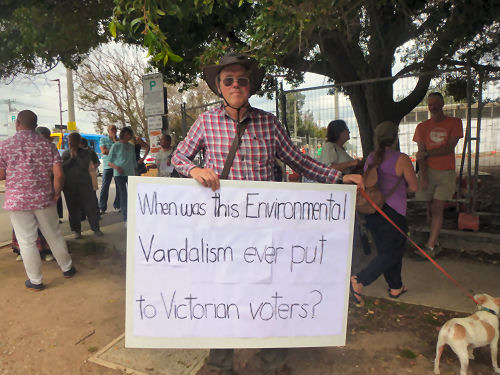 P
When was this Environmental
Vandalism ever put
to Victorian voters?